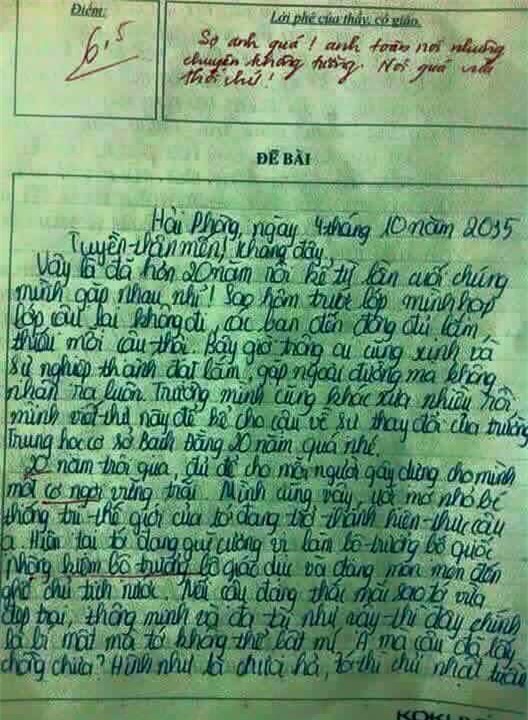 Điểm:
Lời phê của thầy, cô giáo.
6,5
Sợ anh quá! anh toàn nói những
chuyện không tưởng. Nói quá vừa
thôi chứ!
ĐỀ BÀI
Hải Phòng, ngày 4 tháng 10 năm 2035
Tuyền thân mến,
Vậy là đã hơn 20 năm rồi kể từ lần cuối chúng
mình gặp nhau nhỉ! Sao hôm trước lớp mình họp
lớp cậu lại không đi, các bạn đến đông đủ lắm,
thiếu mỗi cậu thôi. Bây giờ trông cu cũng xinh và
sự nghiệp thành đạt lắm, gặp ngoài đường mà không
nhận ra luôn. Trường mình cũng khác xưa nhiều rồi
mình viết thư này để kể cho cậu về sự thay đổi của trường
Trung học cơ sở Bạch Đằng 20 năm qua nhé.
20 năm trôi qua đủ để cho mỗi người gây dựng cho mình
một cơ ngơi vững trãi. Mình cũng vậy, ước mơ nhỏ bé
thống trị thế giới của tớ đang trở thành hiện thực cậu
ạ. Hiện tại tớ đang quị cường vị làm bộ trưởng bộ quốc
phòng kiêm bộ trưởng bộ giáo dục và đang mon men đến
ghế chủ tịch nước. Nếu cậu đang thắc mắc sao tớ vừa
đẹp trai, thông minh và đa tài như vậy thì đây chính
là bí mật mà tớ không thể bật mí. À mà cậu đã lấy
chồng chưa? Hình như là chưa hả, tớ thì chủ nhật tuần
KOKU